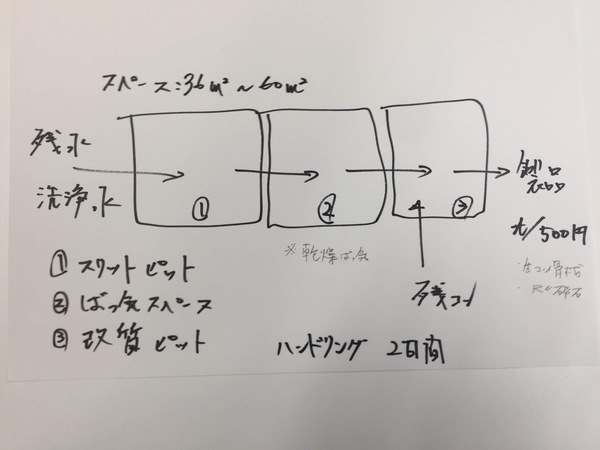 スペース:36㎡～60㎡
残水
洗浄水
①
②
③
製品
t/500円
※乾燥ばっ気
・生コン骨材
・RC砕石
残コン
① スリットピット
② ばっ気スペース
③ 改質ピット
ハンドリング 2日間